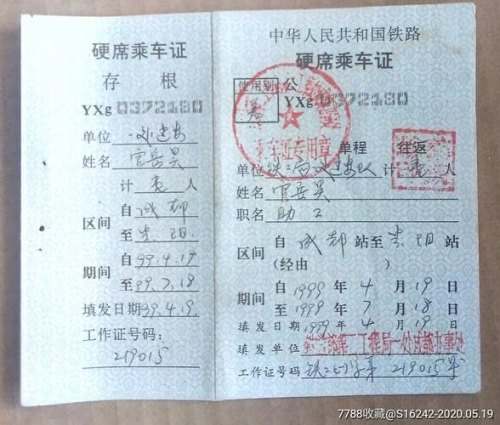 硬席乘车证
存根
YXg 0372180
单位
姓名 官岳昊
计 壹 人
区间 自 成都
至 贵阳
期间 自 99.4.19
至 99.7.18
填发日期 99.4.19.
工作证号码:
219015
中华人民共和国铁路
硬席乘车证
使用别 公
YXg 0372180
乘车证专用章
单程 往返
单位 计 壹 人
姓名 官岳昊
职名 助工
区间 自 成都 站至 贵阳 站
(经由 )
期间 自 1999 年 4 月 19 日
至 1999 年 7 月 18 日
填发日期 1999 年 4 月 19 日
填发单位 工程局一处成都办事处
工作证号码 第 219015 号
7788收藏@S16242-2020.05.19